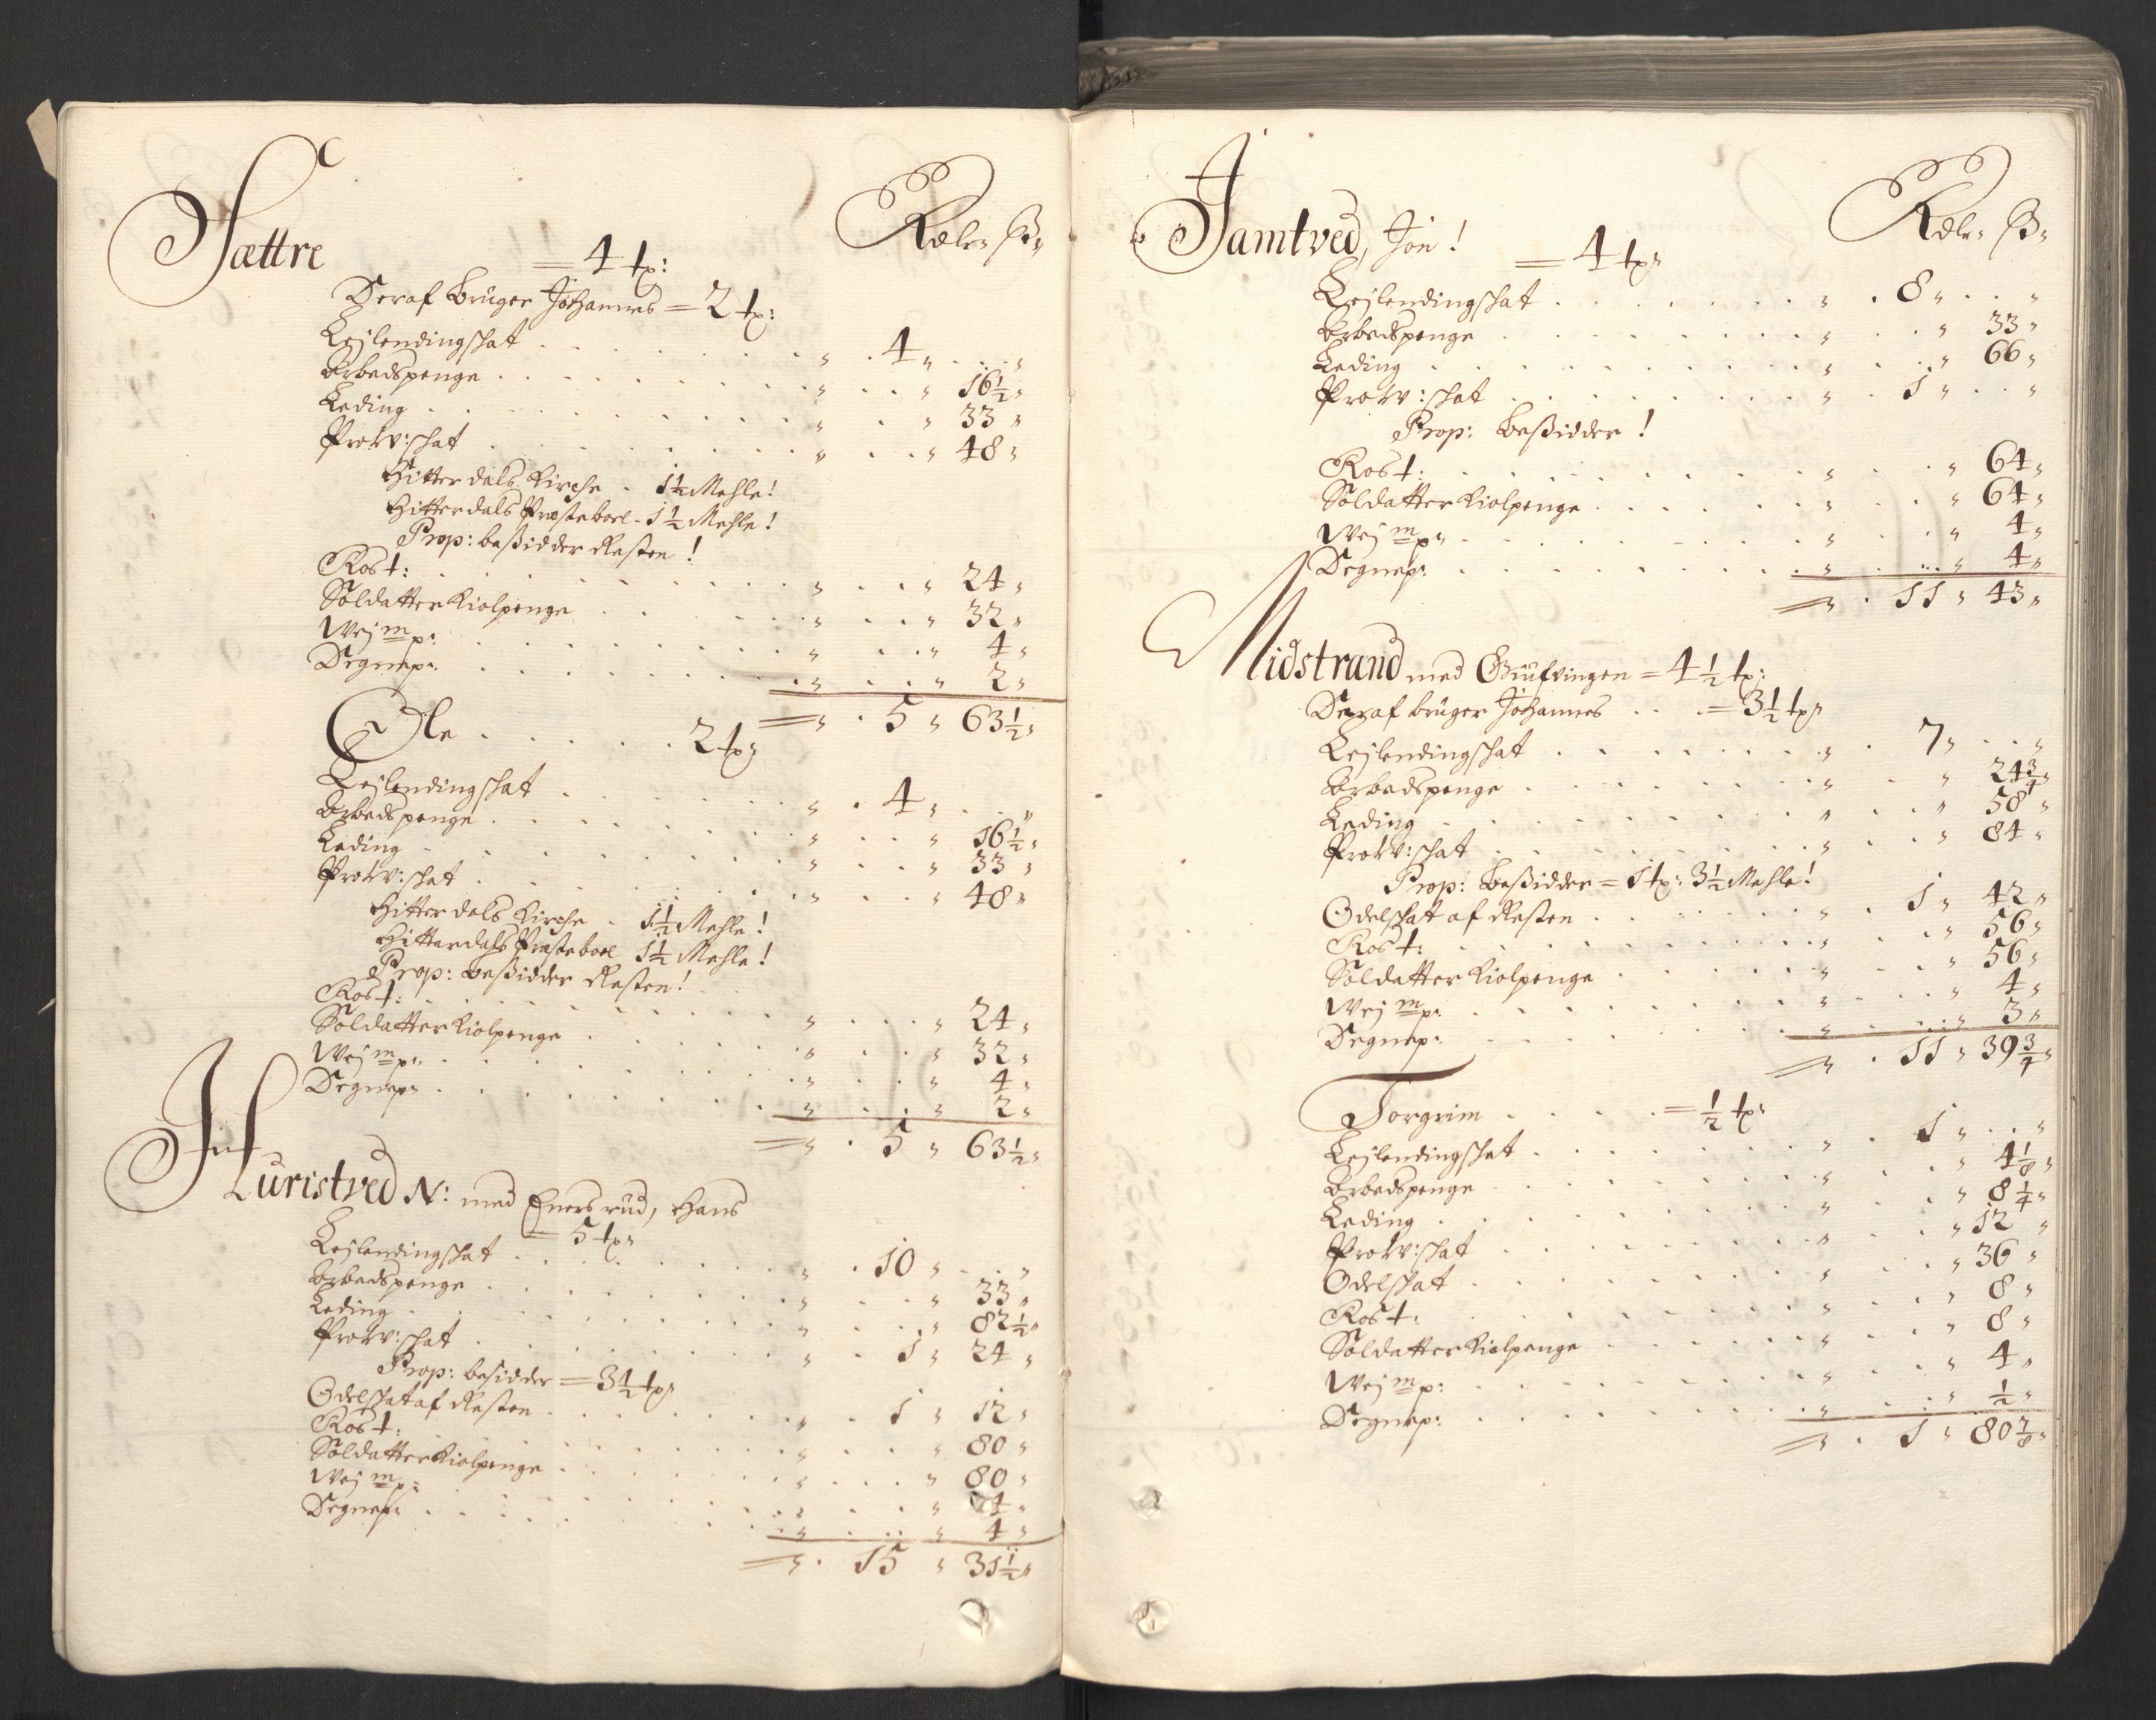 Sættre
Rdlr. ß.
= 4 tp:
Deraf Bruger Johannes = 2 tp:
Leilendingschat . . . . . . . „ . 4 „ . . . „
Arbedspenge . . . . . . . . „ . . . „ 16½ „
Leding . . . . . . . . . „ . . „ 33 „
Prow: schat . . . . . . . . „ . . . „ 48 „
Hitterdals Kirche . 1½ Mehle!
Hitterdals Presteboel - 1½ Mehle!
Prop: beßidder Resten!
Ros t: . . . . . . . . „ . . . „ 24 „
Soldatter Kiolpenge . . . . . . „ . . . „ 32 „
Wej m p: . . . . . . . . „ . . . „ 4 „
Degnep: . . . . . . . . „ . . . „ 2 „
= „ . 5 „ 63½ „
Ole . . . . . 2 tp:
Leilendingschat . . . . . . . „ . 4 „ . . „
Arbedspenge . . . . . . . . „ . . . „ 16½ „
Leding . . . . . . . . . „ . . . „ 33 „
Prow: schat . . . . . . . . „ . . . „ 48 „
Hitterdals Kirche . 1½ Mehle!
Hitterdals Presteboel 1½ Mehle!
Prop: beßidder Resten!
Ros t: . . . . . . . . „ . . . „ 24 „
Soldatter Kiolpenge . . . . . . „ . . . „ 32 „
Wej m p: . . . . . . . . „ . . . „ 4 „
Degnep: . . . . . . . . „ . . . „ 2 „
= „ . 5 „ 63½ „
Huristved N: med Enersrud, Hans
= 5 tp:
Leilendingschat . . . . . . . „ . 10 „ . . . „
Arbedspenge . . . . . . . . „ . . . „ 33 „
Leding . . . . . . . . . „ . . . „ 82½ „
Prow: schat . . . . . . . . „ . 1 „ 24 „
Prop: besidder = 3½ tp:
Odelschat af Resten . . . . . . „ . 1 „ 12 „
Ros t: . . . . . . . . „ . . . „ 80 „
Soldatter Kiolpenge . . . . . . „ . . . „ 80 „
Wej m p: . . . . . . . . „ . . . „ 4 „
Degnep: . . . . . . . . „ . . . „ 4 „
= „ . 15 „ 31½ „
Jamtved, Jon!
Rdlr. ß.
= 4 tp:
Leilendingschat . . . . . . . „ . 8 „ . . „
Arbedspenge . . . . . . . . „ . . . „ 33 „
Leding . . . . . . . . . „ . . . „ 66 „
Prow: schat . . . . . . . . „ . 1 „ . . „
Prop: Beßidder!
Ros t: . . . . . . . . „ . . . „ 64 „
Soldatter Kiolpenge . . . . . . „ . . . „ 64 „
Wej m p: . . . . . . . . „ . . . „ 4 „
Degnep: . . . . . . . . „ . . . „ 4 „
= „ . 11 „ 43 „
Midstrand med = 4½ tp:
Deraf bruger Johannes . . . = 3½ tp:
Leilendingschat . . . . . . . „ . 7 „ . . „
Arbedspenge . . . . . . . . „ . . . „ 24¾ „
Leding . . . . . . . . . „ . . . „ 58 „
Prow: schat . . . . . . . . „ . . . „ 84 „
Prop: Beßidder = 1 tp: 3½ Mehle!
Odelschat af Resten . . . . . . „ . 1 „ 42 „
Ros t: . . . . . . . . „ . . . „ 56 „
Soldatter Kiolpenge . . . . . . „ . . . „ 56 „
Wej m p: . . . . . . . . „ . . . „ 4 „
Degnep: . . . . . . . . „ . . . „ 3 „
= „ . 11 „ 39¾ „
Torgrim . . . . . = ½ tp:
Leilendingschat . . . . . . . „ . 1 „ . . „
Arbedspenge . . . . . . . . „ . . . „ 4⅛ „
Leding . . . . . . . . . „ . . . „ 8¼ „
Prow: schat . . . . . . . . „ . . . „ 12 „
Odelschat . . . . . . . . „ . . . „ 36 „
Ros t: . . . . . . . . „ . . . „ 8 „
Soldatter Kiolpenge . . . . . . „ . . . „ 8 „
Wej m p: . . . . . . . . „ . . . „ 4 „
Degnep: . . . . . . . . „ . . . „ ½ „
= „ . 1 „ 80⅞ „